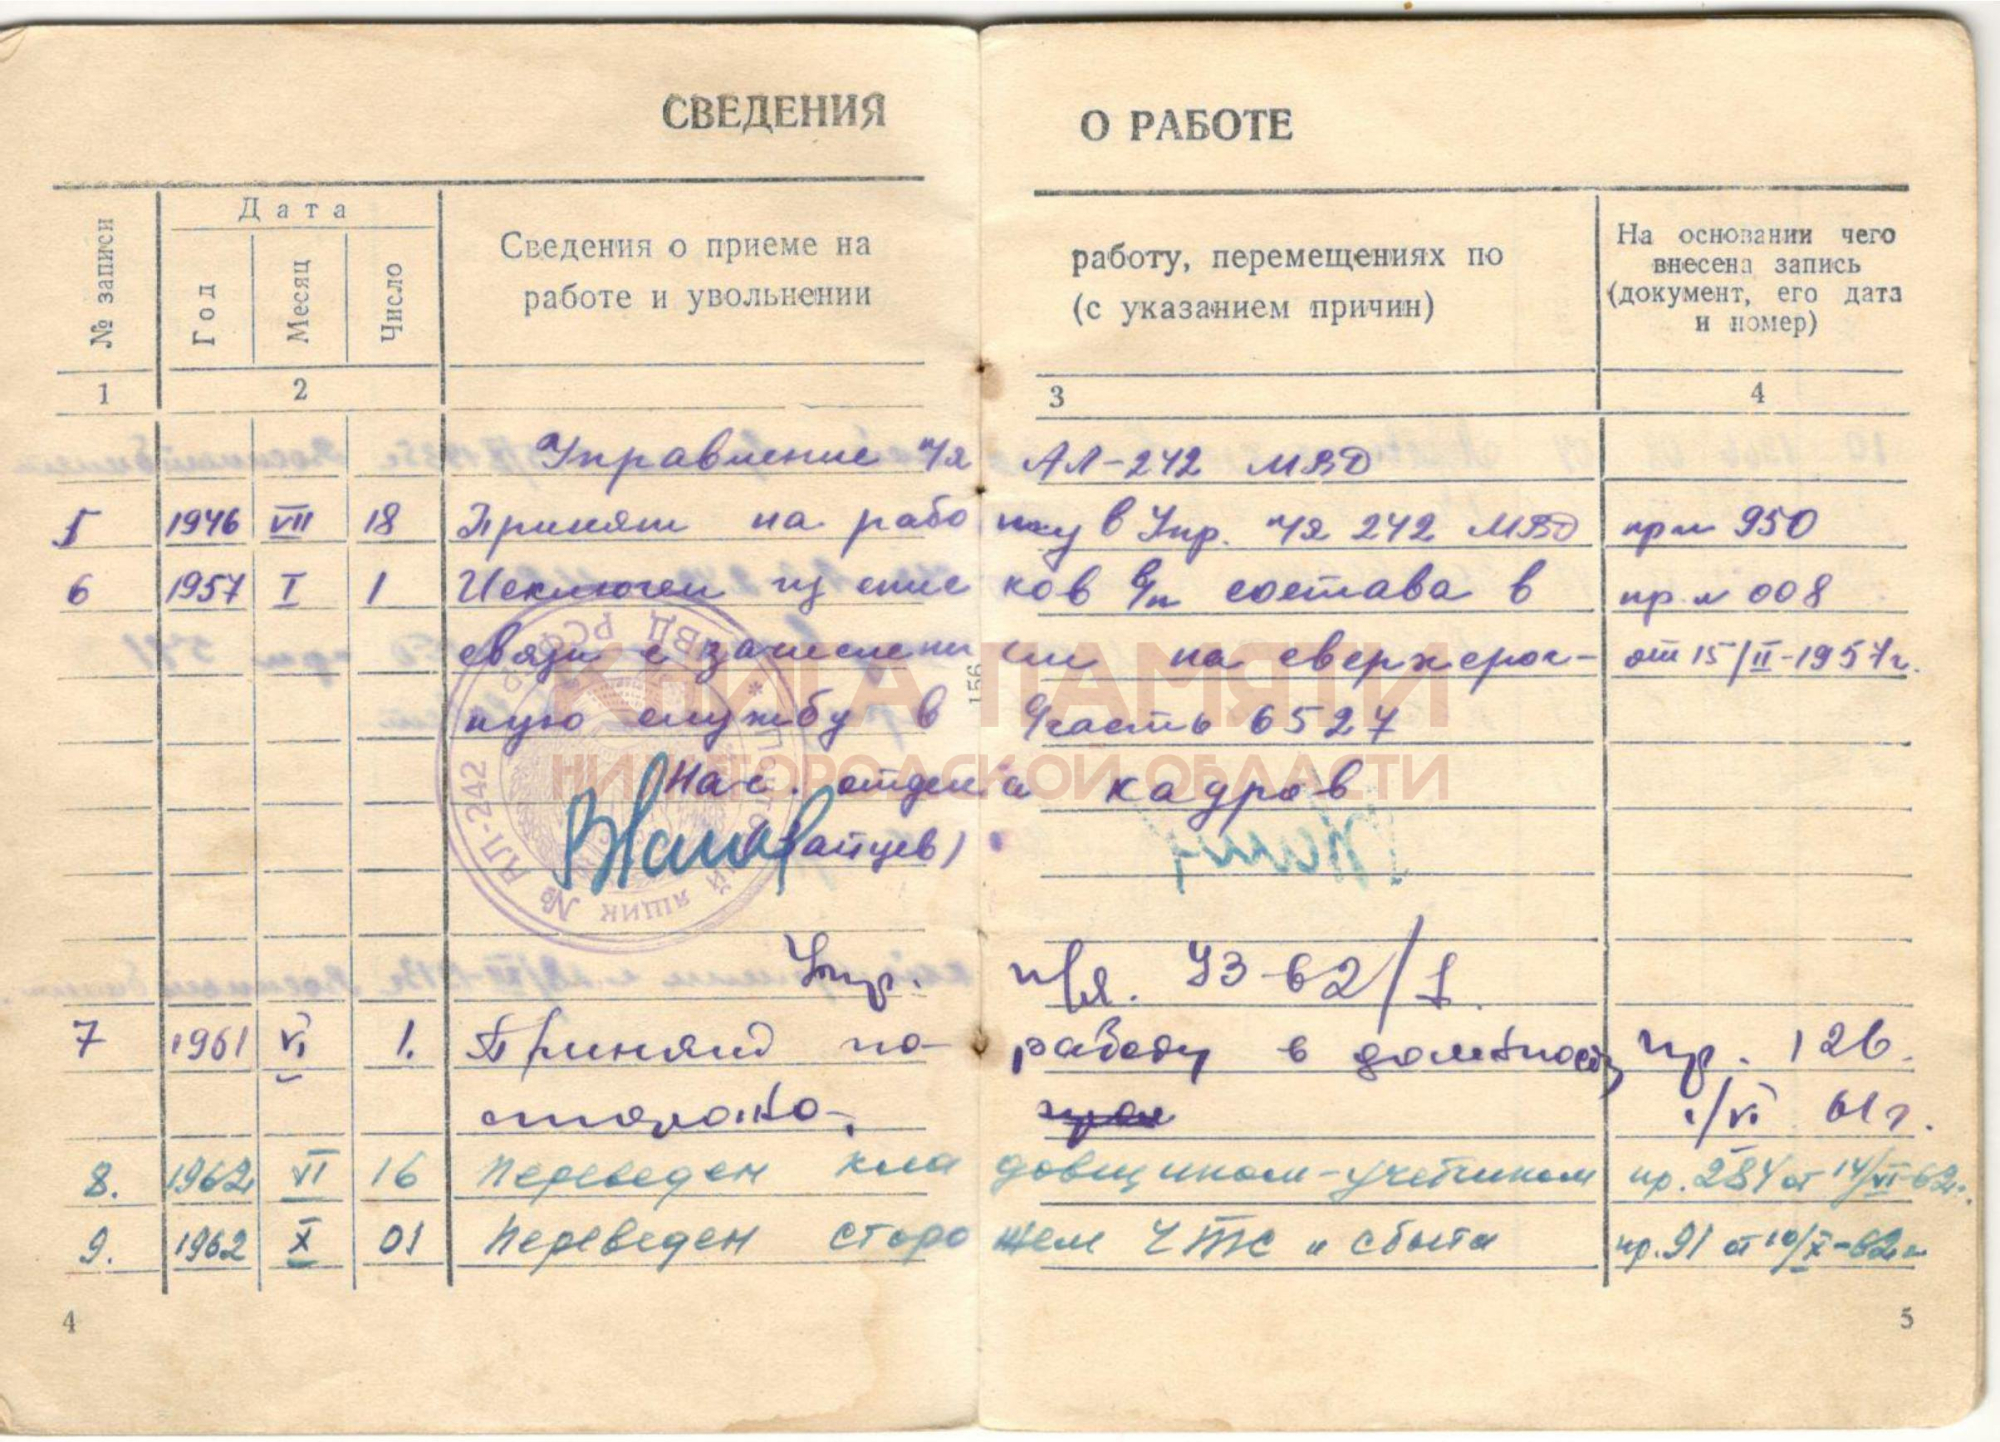 СВЕДЕНИЯ О РАБОТЕ
№ записи
Дата
Год
Месяц
Число
Сведения о приеме на работу, перемещениях по
работе и увольнении (с указанием причин)
На основании чего
внесена запись
(документ, его дата
и номер)
1 2 3 4
Управление п/я АЛ-242 МВД
5 1946 VII 18 Принят на работу в Упр. п/я 242 МВД пр № 950
6 1957 I 1 Исключен из списков в/н состава в пр. № 008
связи с зачислением на сверхсроч- от 15/II-1957г.
ную службу в часть 6527
Нач. отдела кадров
Упр. п/я. УЗ-62/1
7 1961 VI 1. Принят на работу в должность пр. 126.
сторожа. 1/VI 61г.
8. 1962 VI 16 Переведен кладовщиком-учетчиком пр. 284 от 14/VI-62г.
9. 1962 X 01 Переведен сторожем ЧТС и сбыта пр. 91 от 10/X-62г
156
МВД РСФСР
ЯЩИК № АЛ-242
КНИГА ПАМЯТИ
НИЖЕГОРОДСКОЙ ОБЛАСТИ
4 5